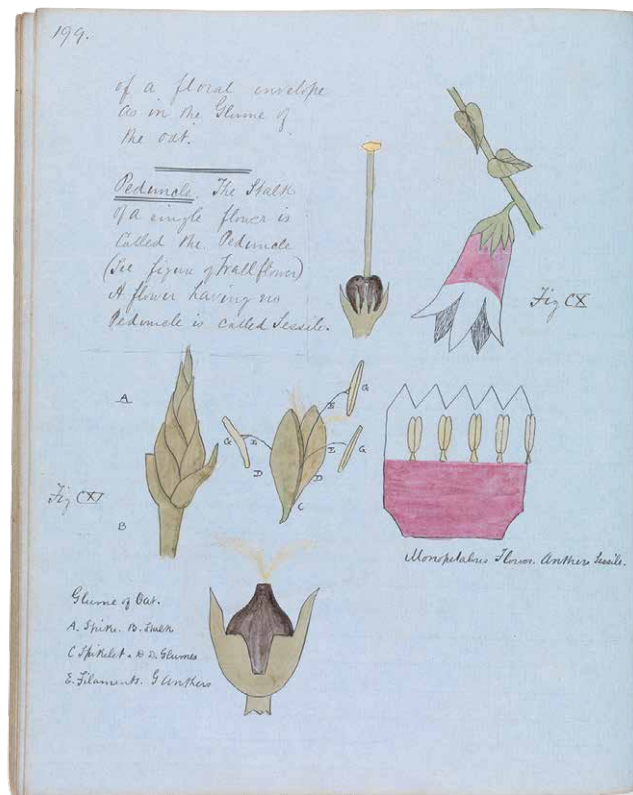 199.
of a floral envelope
as in the Glume of
the oat.
Peduncle The Stalk
of a single flower is
Called the Peduncle
(See figure of Wallflower)
A flower having no
Peduncle is called Sessile.
Fig CX
A
G
E
G
E
E
G
D
D
C
Fig CXI
B
Monopetalus Flower. Anthers Sessile.
Glume of Oat.
A. Spike. B. Stalk
C Spikelet. D D. Glumes
E. Filaments. G Anthers